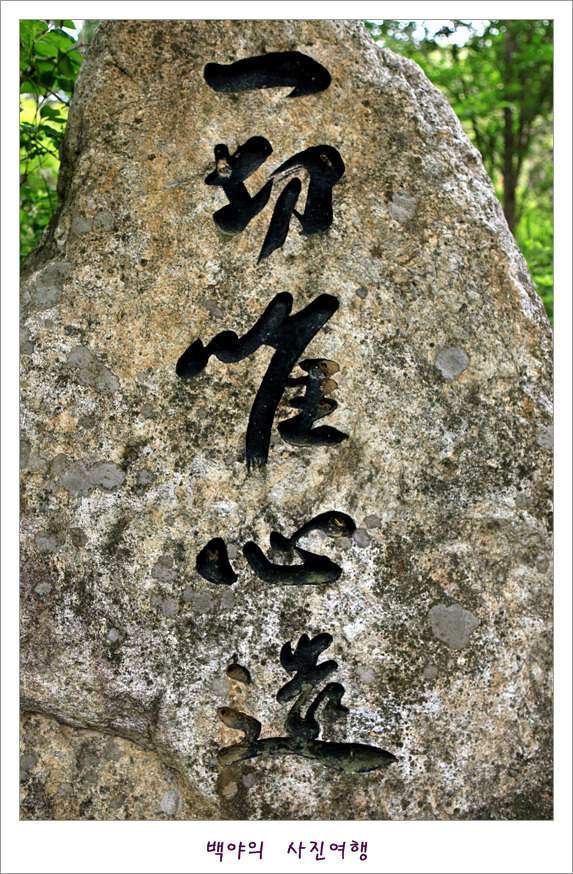 一切唯心造
백야의 사진여행